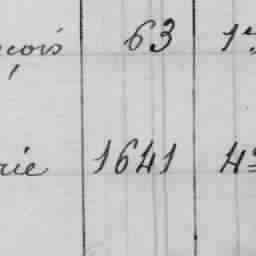 çois 63 1er
rie 1641 4e